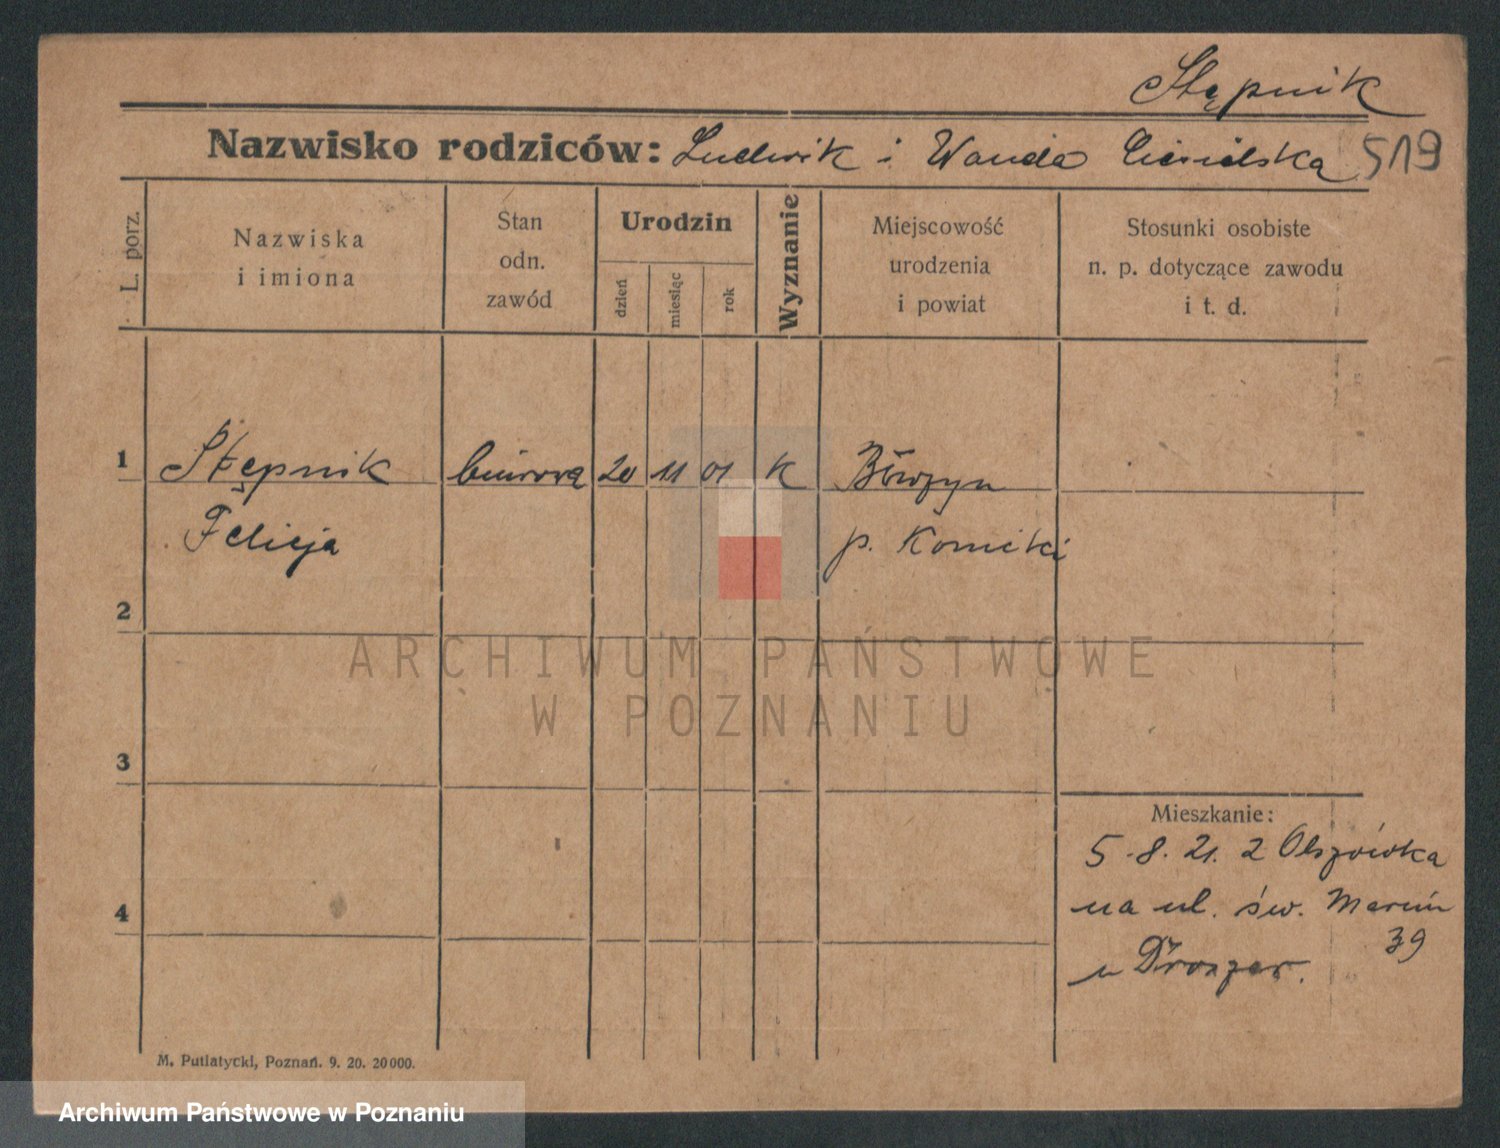 Stępnik
Nazwisko rodziców: Ludwik i Wanda Ciesielska 519
L. porz.
Nazwiska
i imiona
Stan
odn.
zawód
Urodzin
dzień
miesiąc
rok
Wyznanie
Miejscowość
urodzenia
i powiat
Stosunki osobiste
n. p. dotyczące zawodu
i t. d.
1 Stępnik biurowa 20 11 01 K
Felicja p.
2
ARCHIWUM PAŃSTWOWE
W POZNANIU
3
Mieszkanie:
5.8.21. z Olszówka
na ul. św. Marcin
39
u
4
M. Putiatycki, Poznań. 9. 20. 20000.
Archiwum Państwowe w Poznaniu